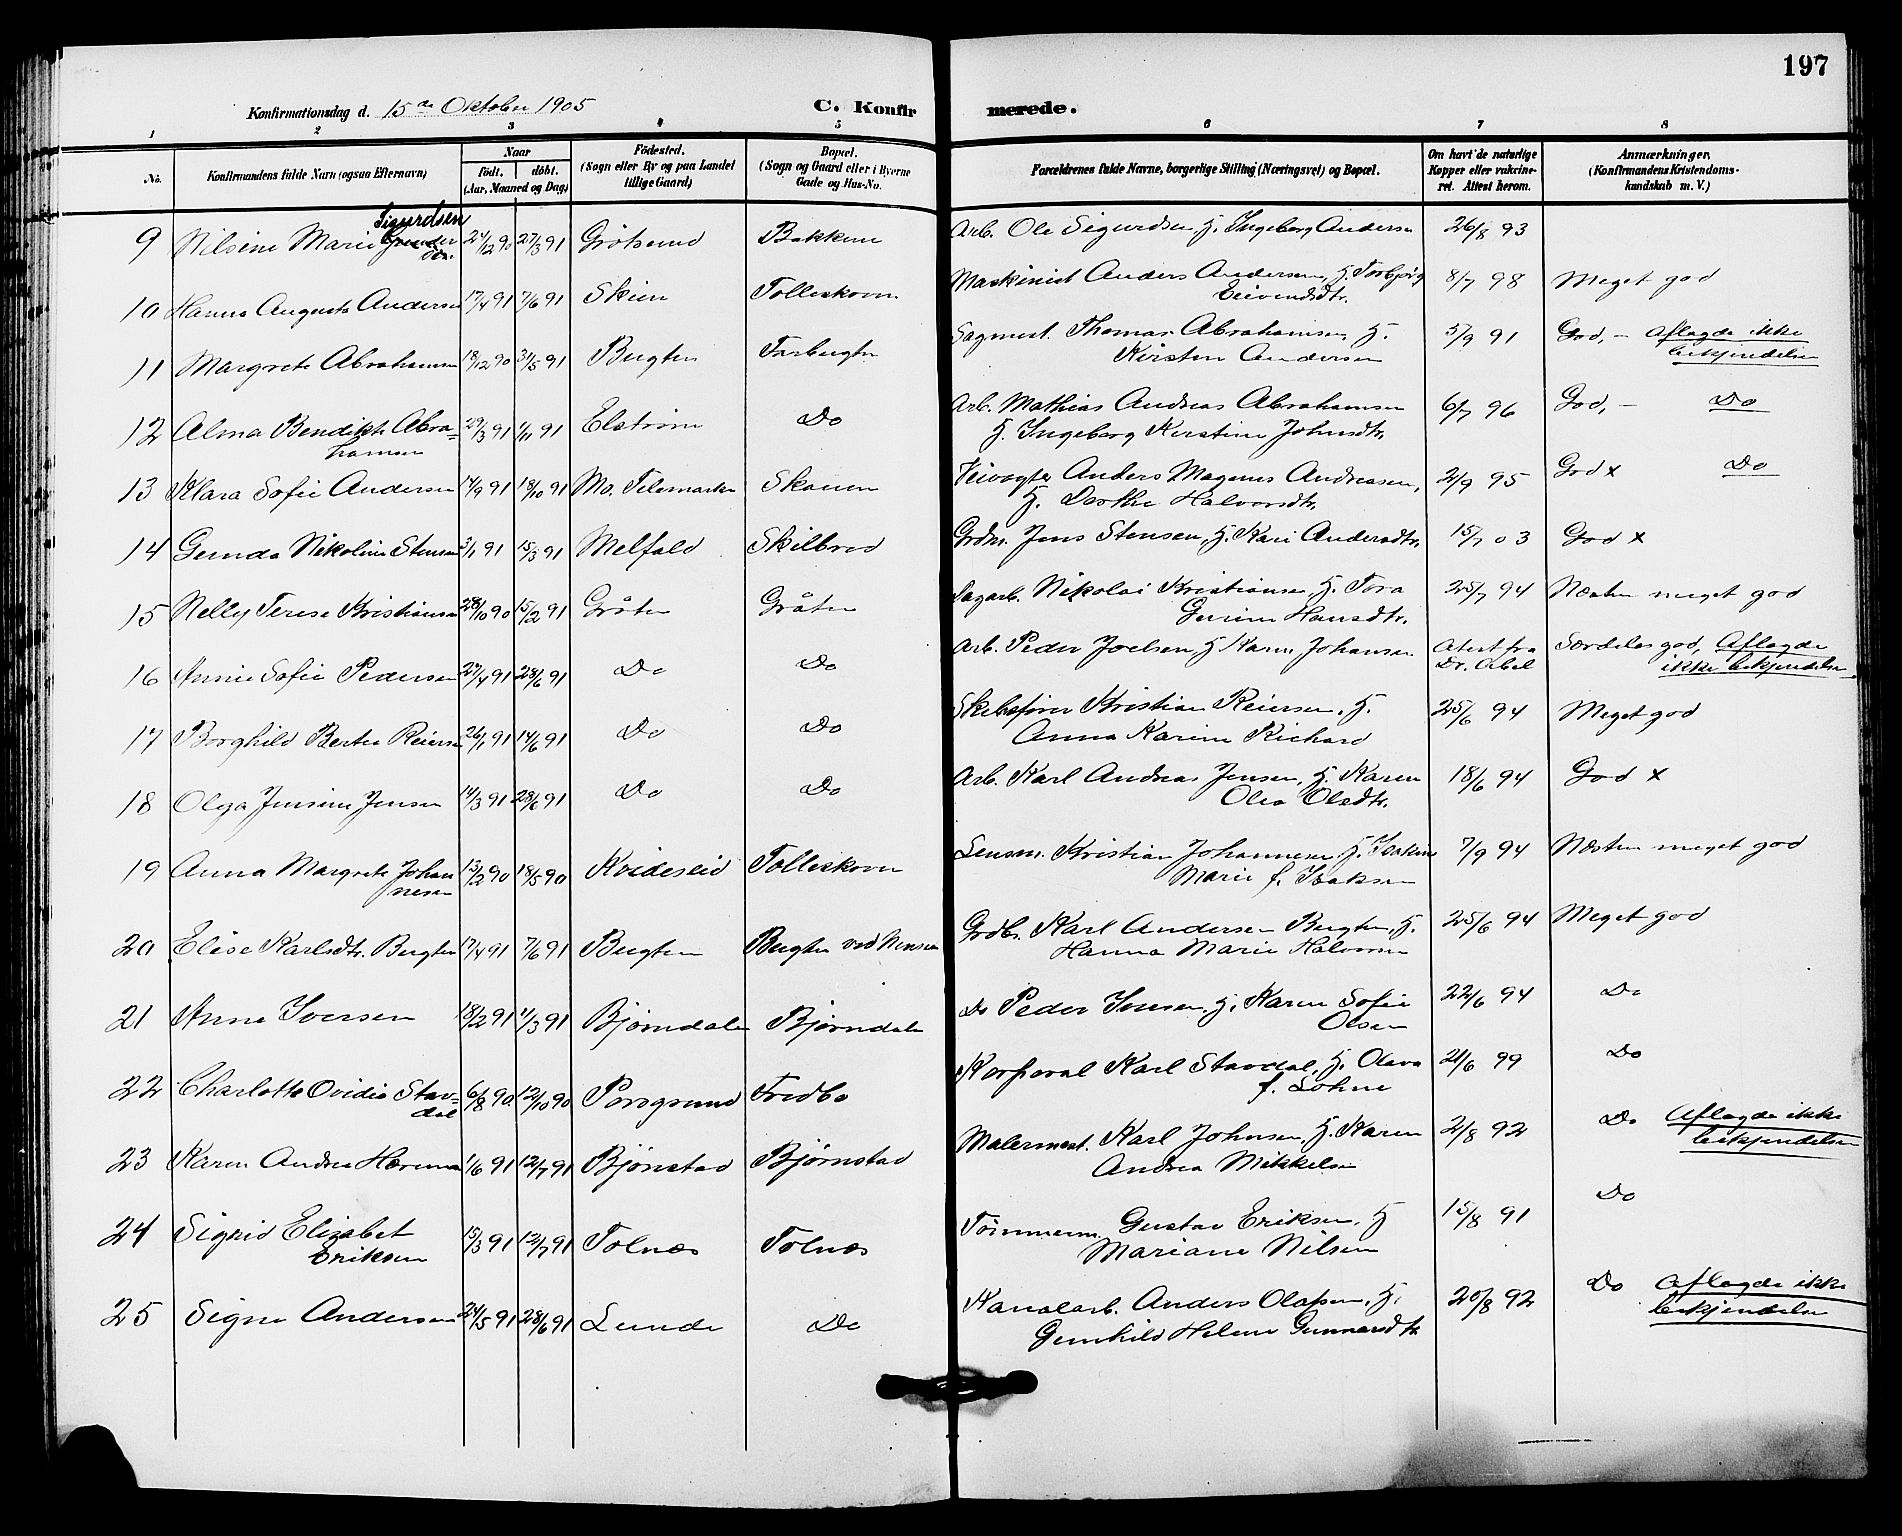 197
Konfirmationsdag d. 15de Oktober 1905 C. Konfirmerede.
1 2 3 4 5 6 7 8
No. Konfirmandens fulde Navn (ogsaa Efternavn) Naar födt. döbt. (Aar, Maaned og Dag) Födested. (Sogn eller By og paa Landet tillige Gaard) Bopæl. (Sogn og Gaard eller i Byerne Gade og Hus-No. Forældrenes fulde Navne, borgerlige Stilling (Næringsvei) og Bopæl. Om havt de naturlige Kopper eller vakcineret. Attest herom. Anmærkninger. (Konfirmandens Kristendomskundskab m. V.)
9 Nilsine Marie Sigurdsen 24/12 90 27/3 91 Grötsund Bakken Arb. Ole Sigurdsen, H. Ingeborg Andersen 26/8 93
10 Hanna Augusta Andersen 17/4 91 7/6 91 Skien Tolleskoven Maskinist Anders Andersen, H. Torbjörg
Eivendsdtr. 8/7 98 Meget god
11 Margrete Abrahamsen 18/12 90 31/5 91 Bugten Torbugtn Sagmest. Thomas Abrahamsen, H.
Kirsten Andersen 5/9 91 God, - Aflagde ikke
bekjendelse
12 Alma Bendikte Abra=
hamsen 29/3 91 1/11 91 Elström Do Arb. Mathias Andreas Abrahamsen
H. Ingeborg Kirstine Johnsdtr. 6/7 96 God, - Do
13 Klara Sofie Andersen 14/9 91 18/10 91 Mo. Telemarken Skauen Veivogter Anders Magnus Andreasen,
H. Dorthe Halvorsdtr. 2/9 95 God x Do
14 Gunda Nikoline Stensen 3/1 91 15/3 91 Melfald Skilbred Grdm. Jens Stensen, H. Kari Andersdtr. 15/7 03 God x
15 Nelly Terese Kristiansen 28/10 90 15/2 91 Gråten Gråten Sagarb. Nikolai Kristiansen, H. Tora
Gurine Hansdtr. 25/7 94 Næsten meget god
16 Annie Sofie Pedersen 29/4 91 28/6 91 Do Do Arb. Peder Joelsen, H. Karen Johansen Atest fra
Dr. Særdeles god, Aflagde
ikke bekjendelse
17 Borghild Bertea Reiersen 26/1 91 14/6 91 Do Do Skibsförer Kristian Reiersen, H.
Anna Karine Richard 25/6 94 Meget god
18 Olga Jensine Jensen 14/3 91 28/6 91 Do Do Arb. Karl Andreas Jensen, H. Karen
Olea Olsdtr. 18/6 94 God x
19 Anna Margrete Johan
nesen 13/2 90 18/5 90 Kvideseid Tolleskoven Lensm. Kristian Johannesen, H. Isakine
Marie f. Isaksen 7/9 94 Næsten meget god
20 Elise Karlsdtr. Bugten 17/4 91 7/6 91 Bugten Bugten ved Nensen Grdb. Karl Andersen Bugten, H.
Hanna Marie Halvorsen 25/6 94 Meget god
21 Anne Iversen 18/2 91 1/3 91 Bjørndalen Bjørndalen Do Peder Iversen, H. Karen Sofie
Olsen 22/6 94 Do
22 Charlotte Ovidia Stav=
dal 6/8 90 12/10 90 Porsgrund Fredbo Korporal Karl Stavdal, H. Olava
f. Lohne 21/6 99 Do
23 Karen Andrea Herman 1/6 91 12/7 91 Bjönstad Bjørnstad Malermest. Karl Johnsen, H. Karen
Andrea Mikkelsen 2/8 92 Do Aflagde ikke
bekjendelse
24 Sigrid Elisabet
Eriksen 15/3 91 12/7 91 Tolnæs Tolnæs Tömmerm. Gustav Eriksen, H
Mariane Nilsen 15/8 91 Do
25 Signe Andersen 24/5 91 28/6 91 Lunde Do Kanalarb. Anders Olafsen, H.
Gunhild Helene Gunnarsdtr 20/8 92 Do Aflagde ikke
bekjendelse